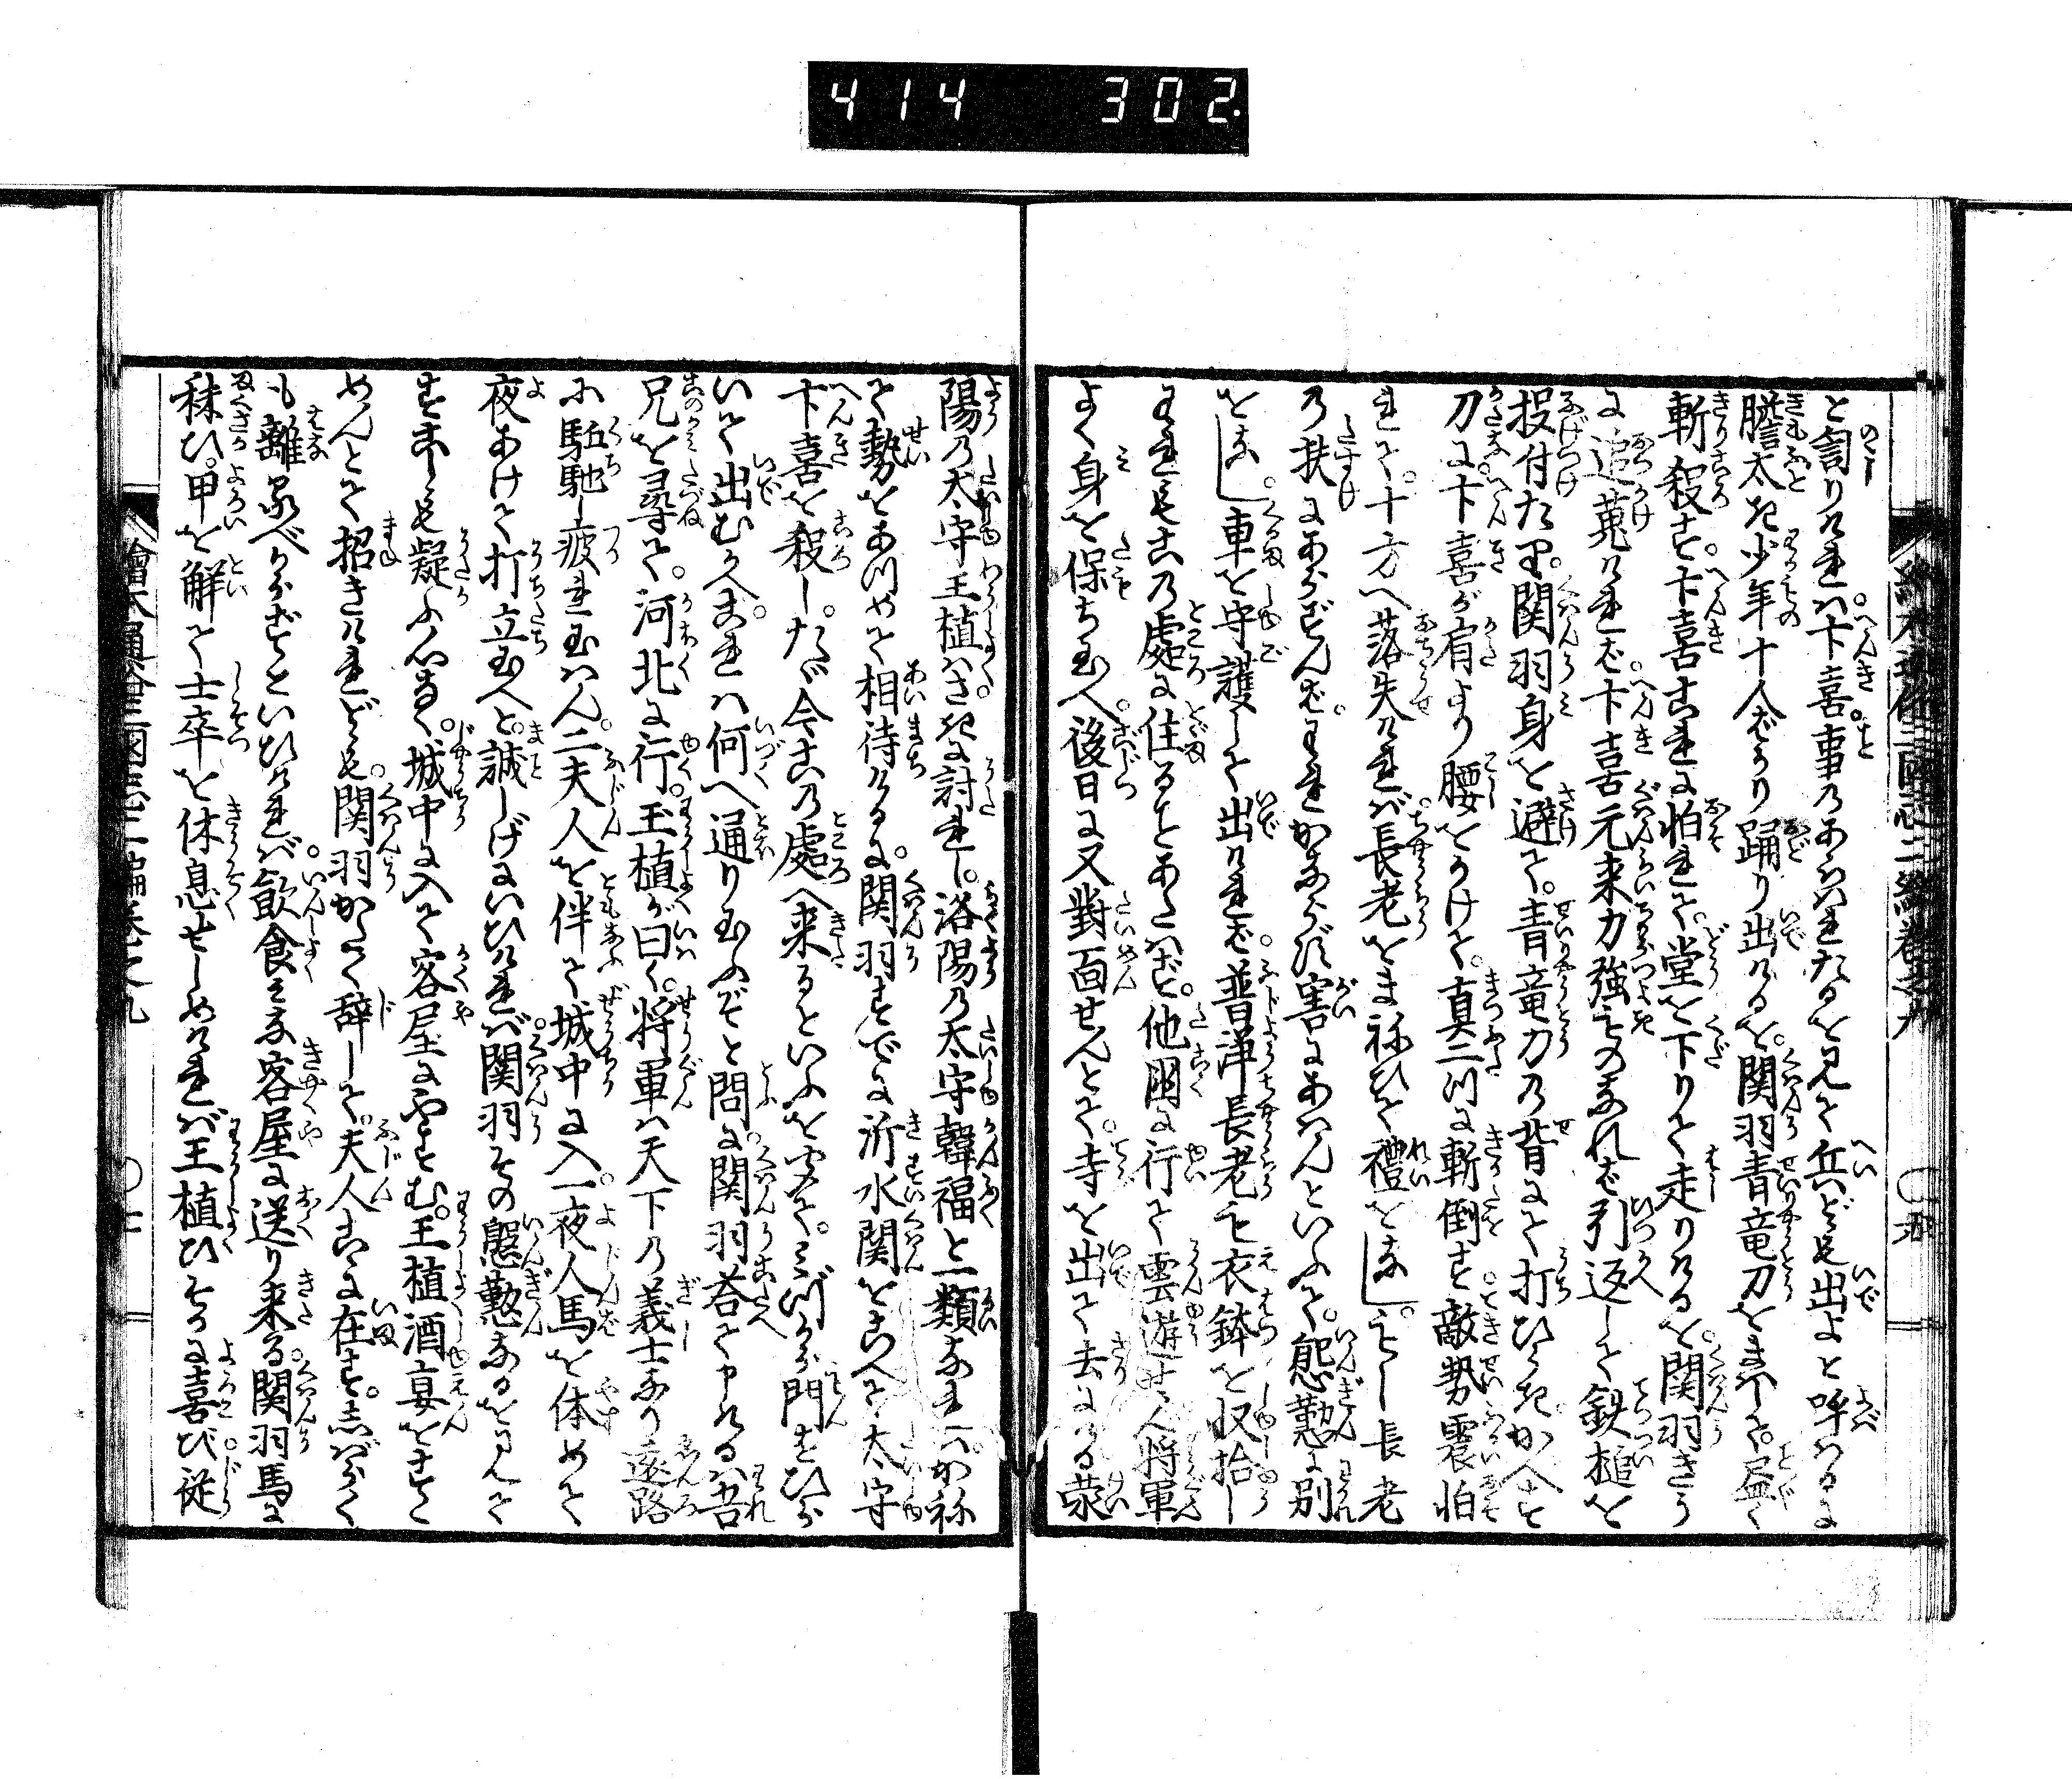 414 302.
と罵りければ。卞喜。事のあらはれたるを見て兵ども出よと呼はるに
膽太き少年十人ばかり踊り出けるを。関羽青竜刀をまはして。尽く
斬殺す。卞喜これに怕れて。堂を下りて走りけるを。関羽きう
に追蒐ければ。卞喜元来力強ものなれば引返して鉄槌を
投付たり。関羽身を避て。青竜刀の背にて打ひらきかへす
刀に。卞喜が肩より腰をかけて。真二つに斬倒す。敵勢震怕
れて。十方へ落失ければ。長老をまねひて禮をなし。もし長老
の扶にあらずんば。われかならず害にあはんといふて。慇懃に別
をなし。車を守護して出ければ。普浄長老も衣鉢を収拾し
われもこの處に住ることあたはず。他国に行て雲遊せん将軍
よく身を保ち玉へ。後日に又對面せんとて。寺を出て去にける滎
陽の太守王植はさきに討れし。洛陽の太守韓福と一類なれば。かね
て勢をあつめて相待けるに。関羽すでに沂水関をこへて太守
卞喜を殺し。たゞ今この處へ来るといふを聞て。みづから門をひら
いて出むかへ。これは何へ通り玉ふぞと問に。関羽荅て申けるは吾
兄を尋て。河北に行。王植が曰く。将軍は天下の義士なり遠路
に駈馳し疲れ玉はん。二夫人を伴て城中に入。一夜人馬を休めて
夜あけて打立玉へと。誠しげにいひければ。関羽その慇懃なるを見て
すこしも疑ふ心なく。城中に入て客屋にやすむ。王植酒宴をすゝ
めんとて招きけれども。関羽かたく辞して。夫人こゝに在す。しばらく
も離るべからずといひければ。飲食みな客屋に送り来る。関羽馬に
秣ひ。甲を解て士卒を休息せしめければ王植ひそかに喜び従